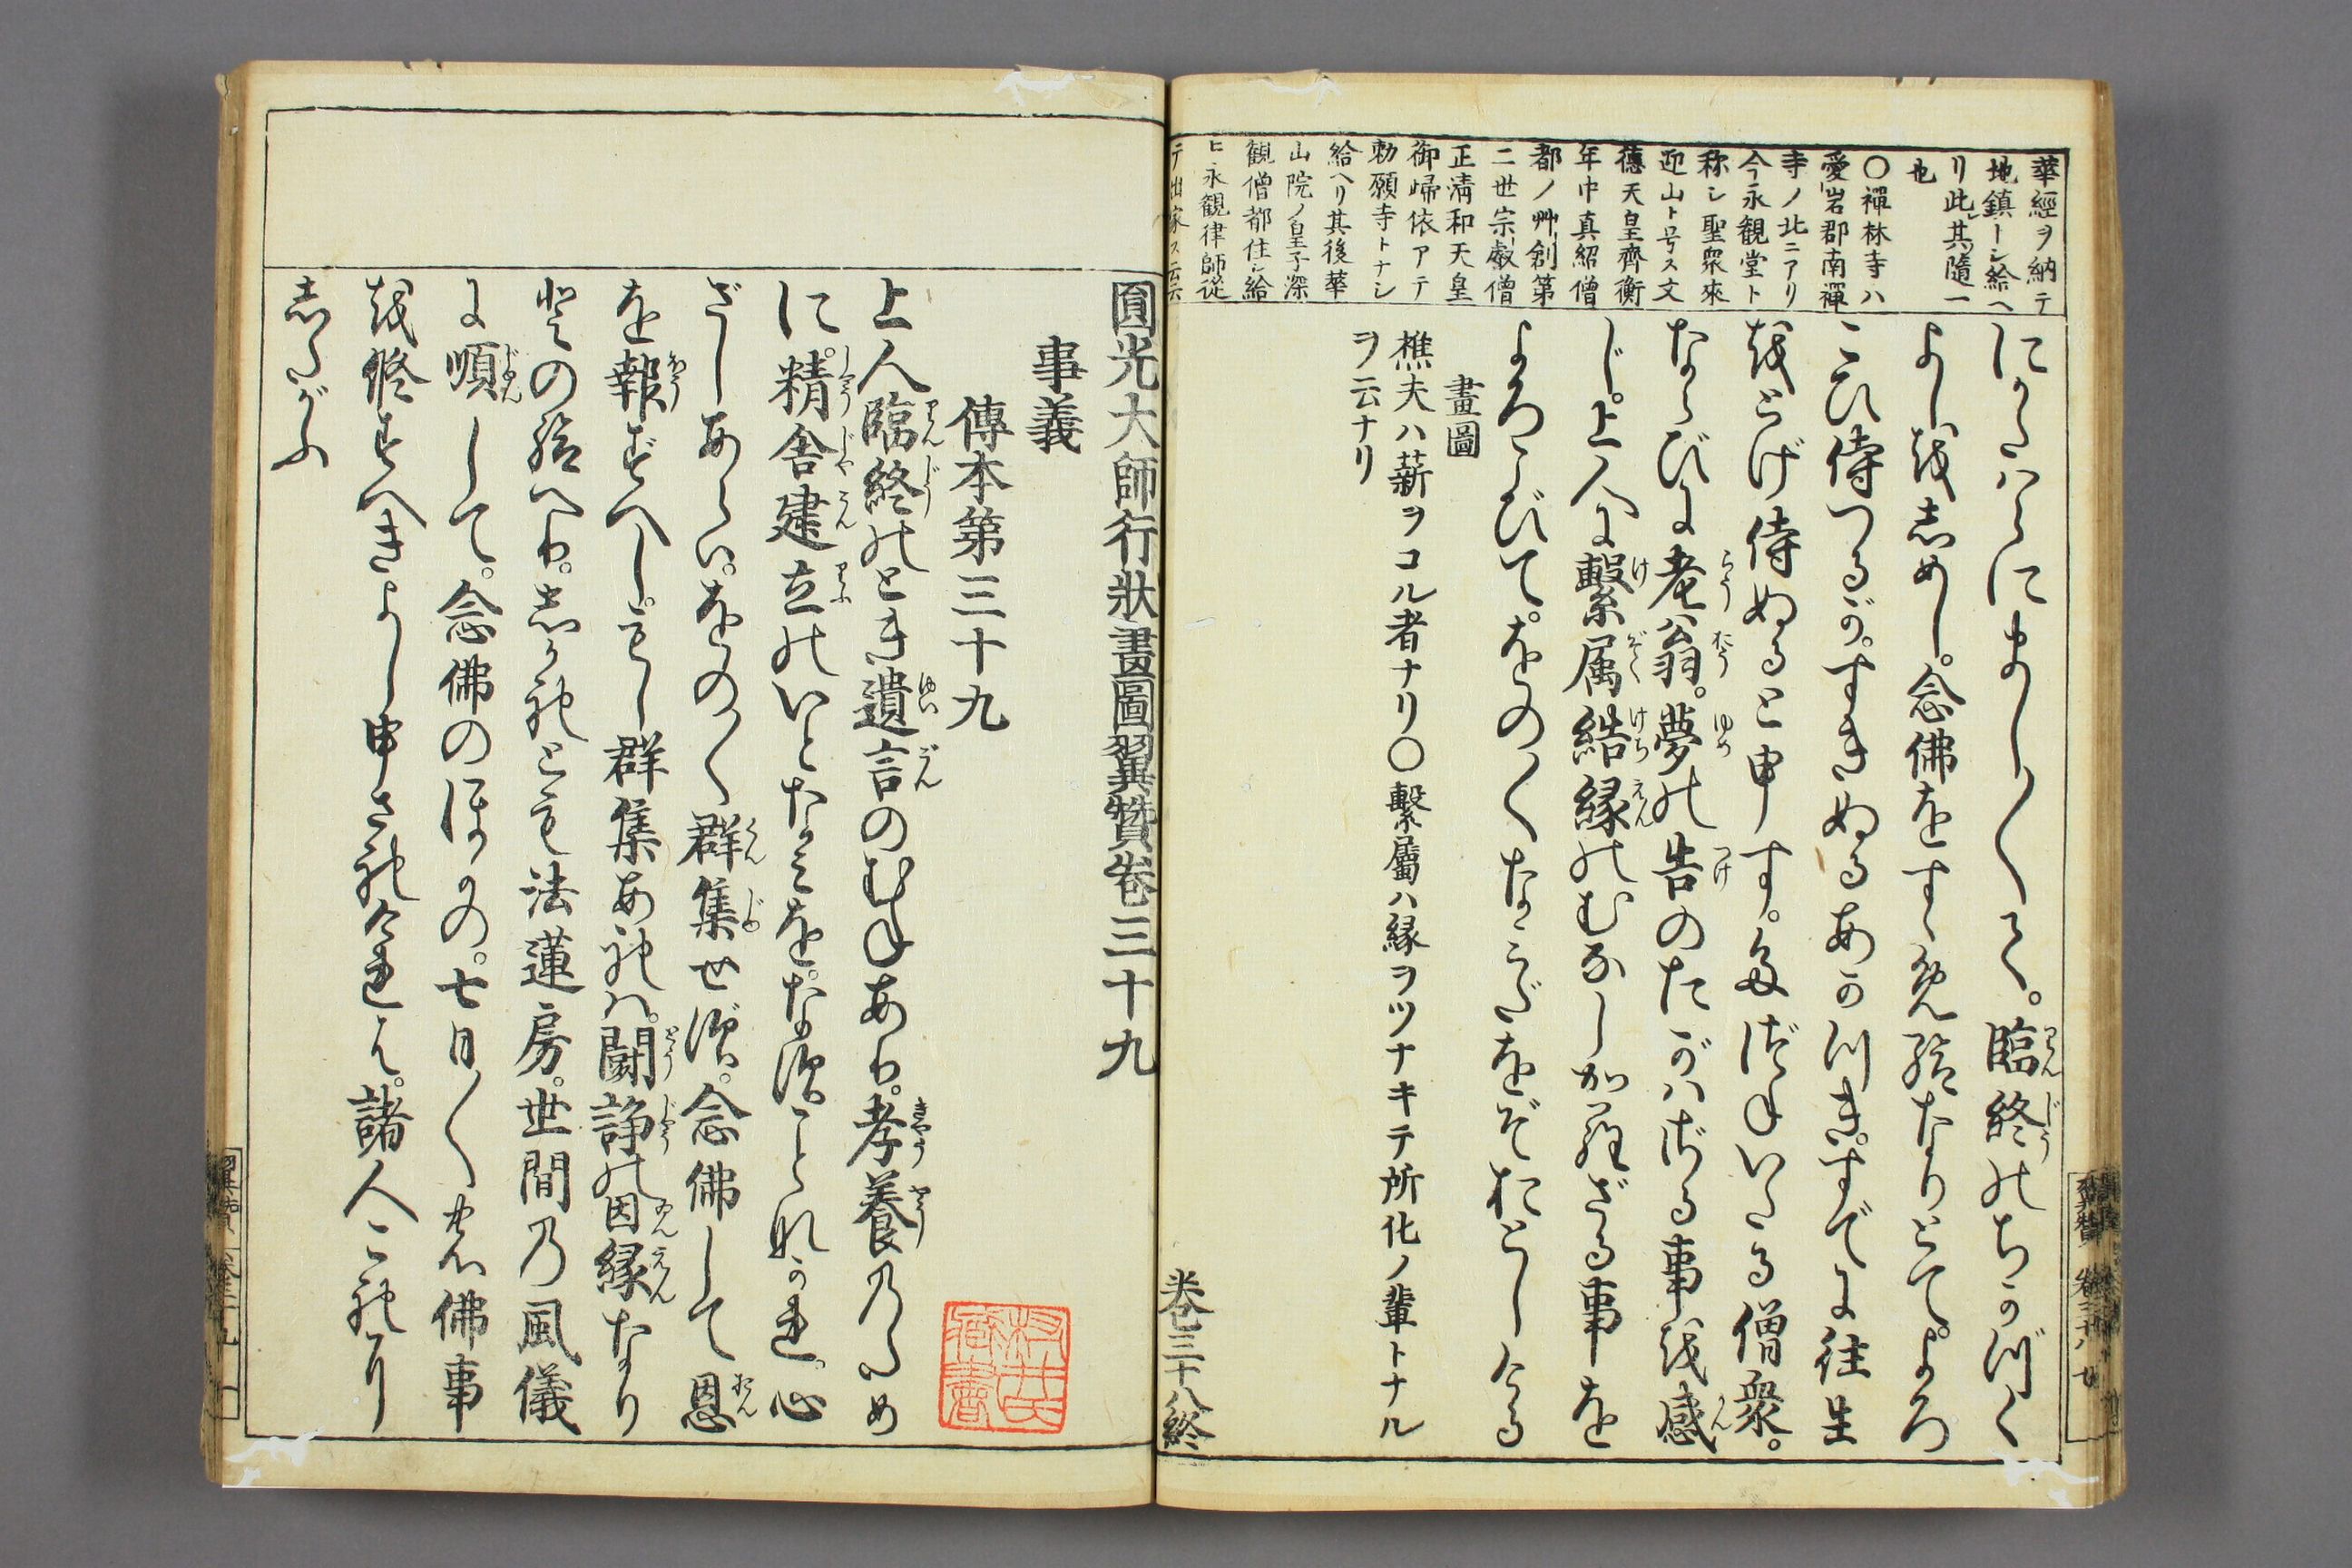 華經ヲ納テ
地鎮トシ給ヘ
リ此レ其隨一
也
○禪林寺ハ
愛岩郡南禪
寺ノ北ニアリ
今永観堂ト
称シ聖衆來
迎山ト号ス文
德天皇齊衡
年中真紹僧
都ノ艸創第
二世宗叡僧
正淸和天皇
御歸依アテ
勅願寺トナシ
給ヘリ其後華
山院ノ皇子深
観僧都住シ給
ヒ永観律師從
テ出家ス云云
にかたハらにまし〱て。臨終のちかづく
よし越志めし。念佛をすゝめ給なりとて。よろ
こひ侍つるが。すきぬるあかつき。すでに往生
越とげ侍ぬると申す。たづねいたる僧衆。
ならびに老翁。夢の告のたがハざる事越感
じ。上人に繫属結縁のむなしからざる事を
よろこびて。をの〱なミだをぞおとしける
畫圖
樵夫ハ薪ヲコル者ナリ○繫屬ハ縁ヲツナキテ所化ノ輩トナル
ヲ云ナリ
卷三十八終
翼賛 卷三十八 廿
圓光大師行狀畫圖翼賛卷三十九
事義
傳本第三十九
上人臨終のとき遺言のむねあり。孝養のため
に。精舎建立のいとなミを。なすことなかれ。心
ざしあらハ。をの〱群集せず。念佛して恩
を報ずへし。もし群集あれハ。闘諍の因縁なり
との給へり。志かれとも法蓮房。世間の風儀
に順して。念佛のほかの。七日〱の佛事
越修すへきよし申されけれは。諸人これに
志たがふ
翼賛 卷三十九 一